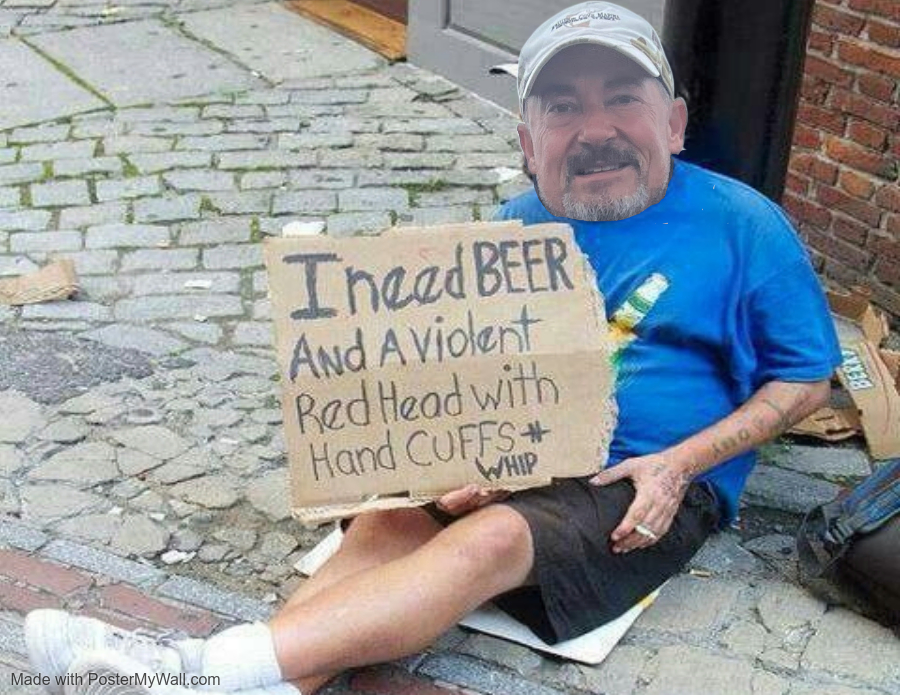 I need BEER
And A violent
Red Head with
Hand CUFFS +
WHIP
Made with PosterMyWall.com